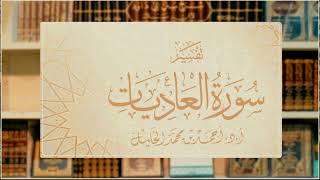 تفسير
سُورَةُ العَادِيَات
أ.د. أحمد بن محمد الخليل